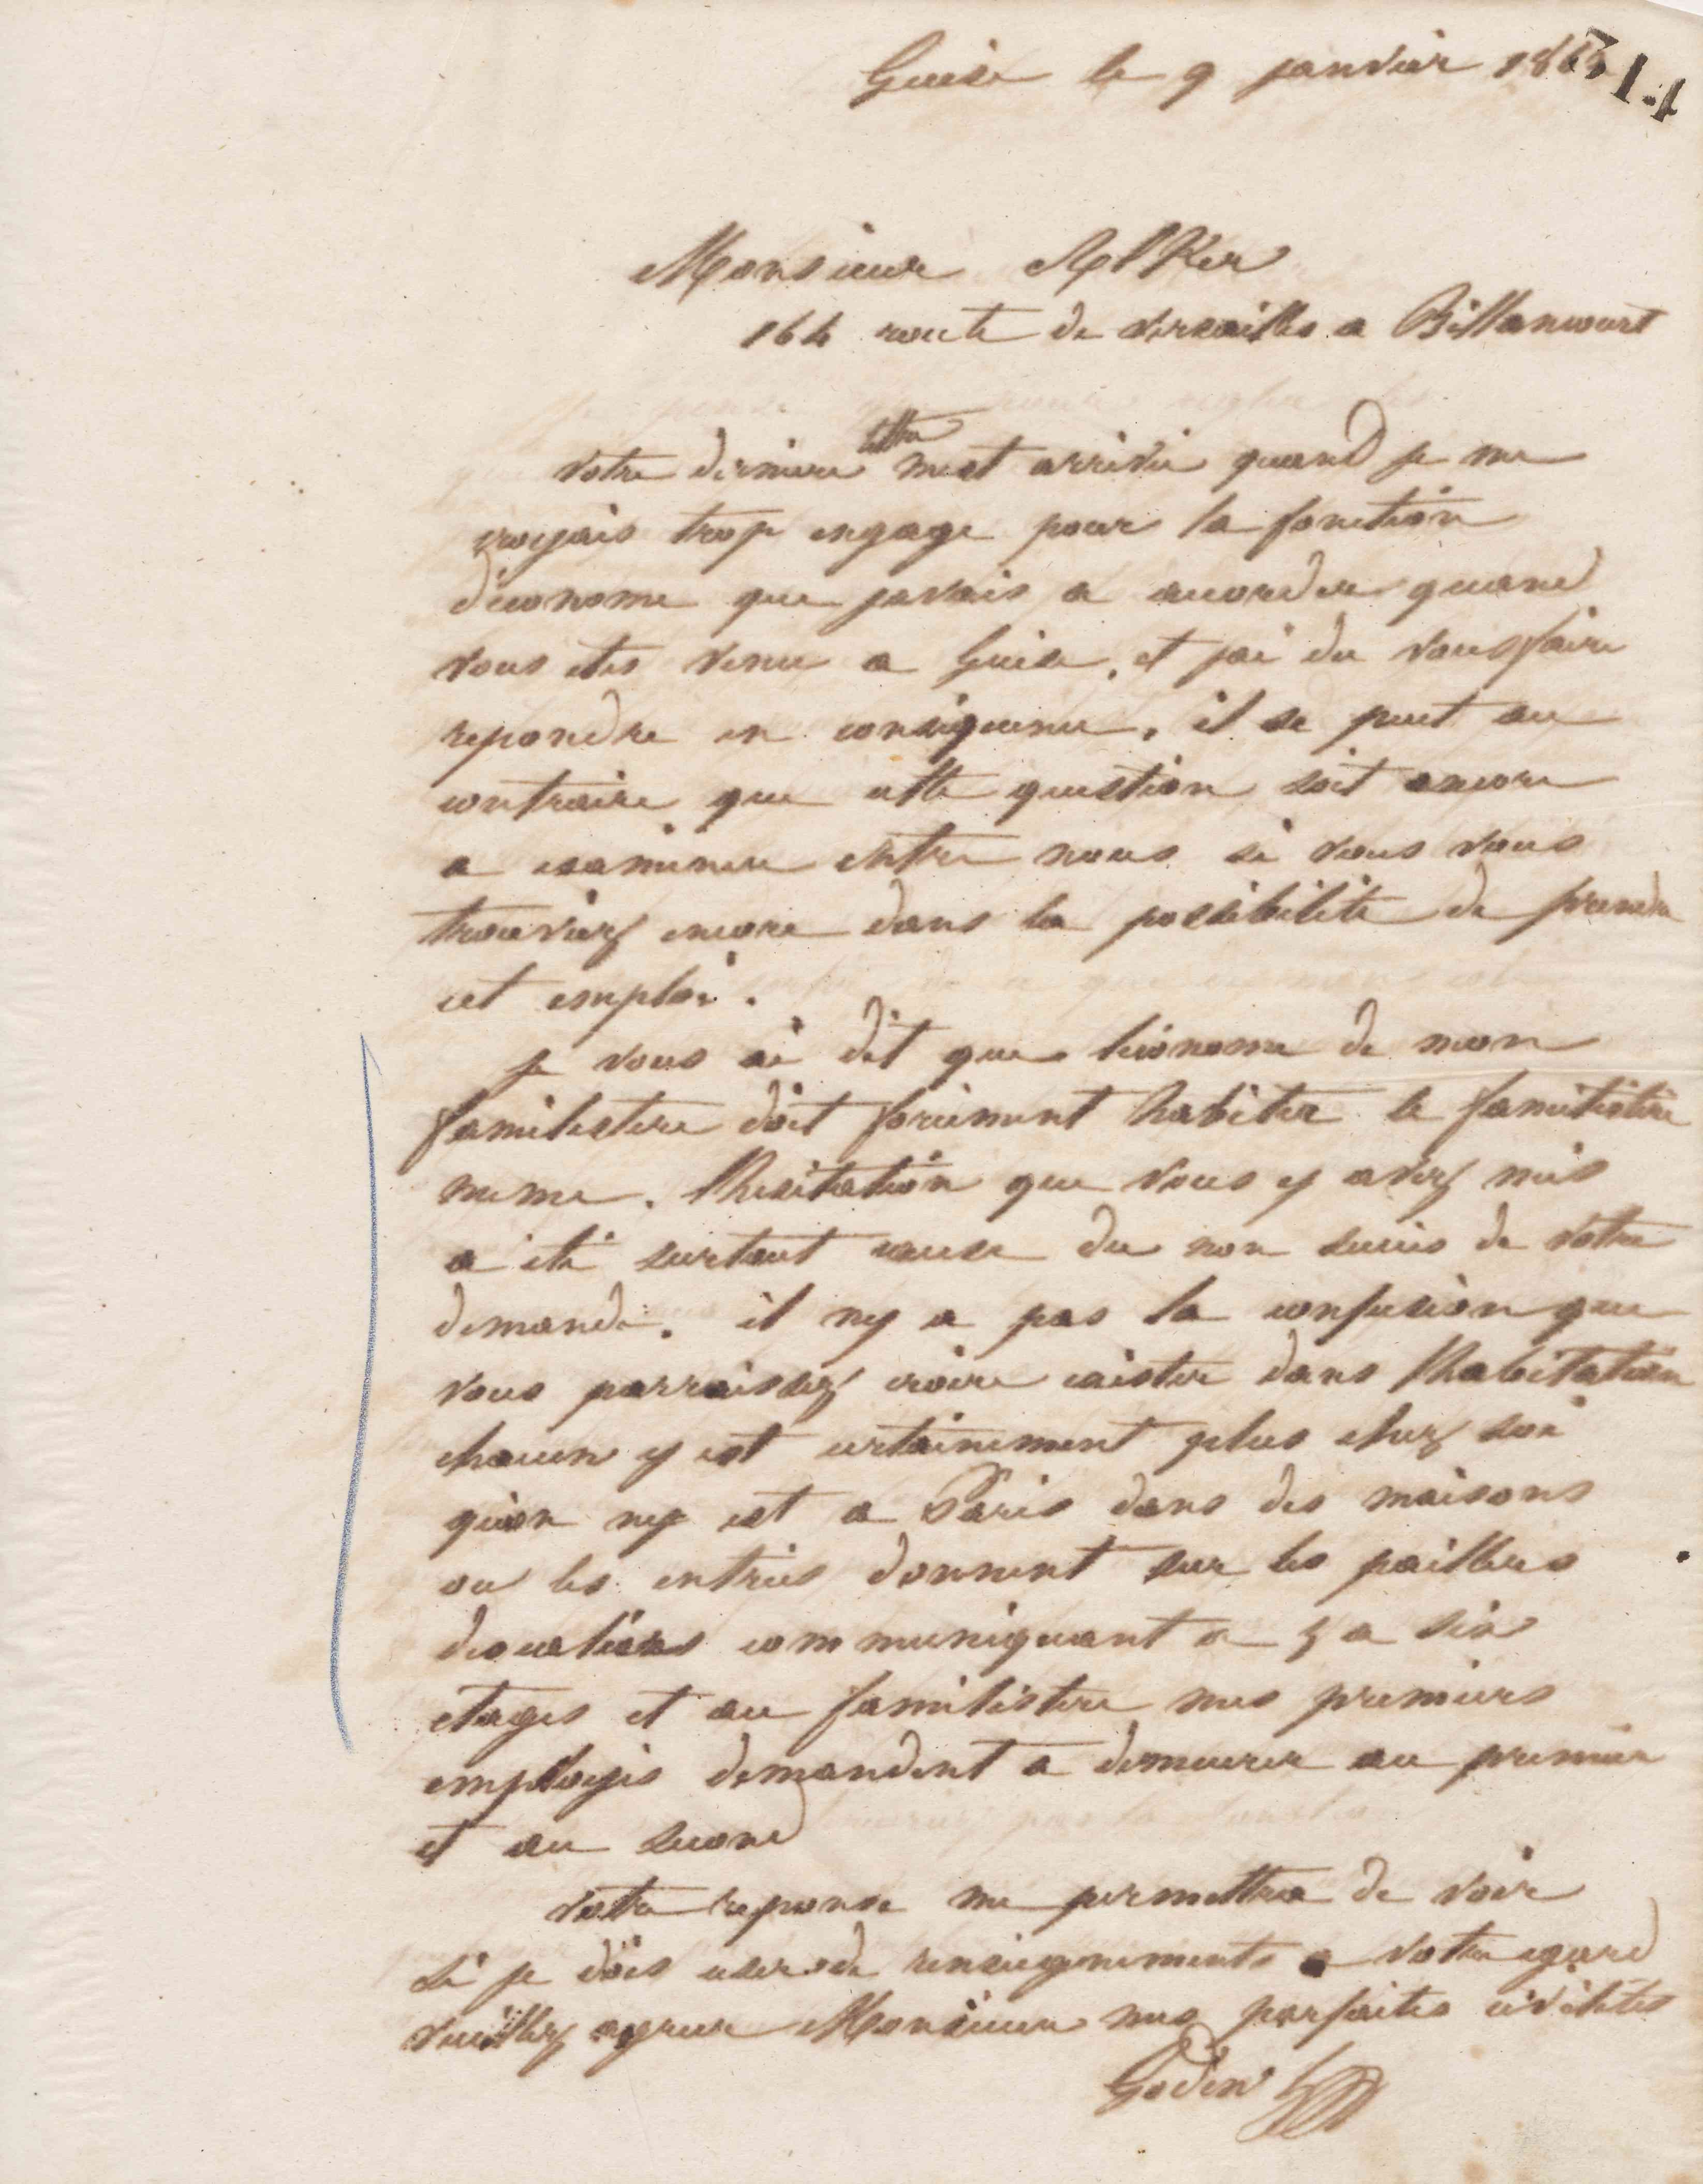 Guise le 9 janvier 186
314
Monsieur
164 route de Versailles a Billancourt
votre derniere lettre mest arrivée quand je me
croyais trop engage pour la fonction
déconome que javais a accorder quand
vous etes venu a Guise, et jai du vous faire
repondre en consequence. il se peut au
contraire que cette question soit encore
a examiner entre nous si vous vous
trouviez encore dans la possibilité de prendre
cet emploi.
Je vous ai dit que léconome de mon
familistere doit forcement habiter le familistere
meme. lhesitation que vous y avez mis
a été surtout cause du non succès de votre
demande. il ny a pas la confusion que
vous parraissez croire exister dans lhabitation
chacun y est certainement plus chez soi
quon ny est a Paris dans des maisons
ou les entrées donnent sur les pailliers
descaliers communiquant a 5 a six
etages et au familistere mes premiers
employés demandent a demeurer au premier
et au second
votre reponse me permettra de voir
si je dois user de renseignements a votre egard
veuillez agreer Monsieur mes parfaites civilités
Godin